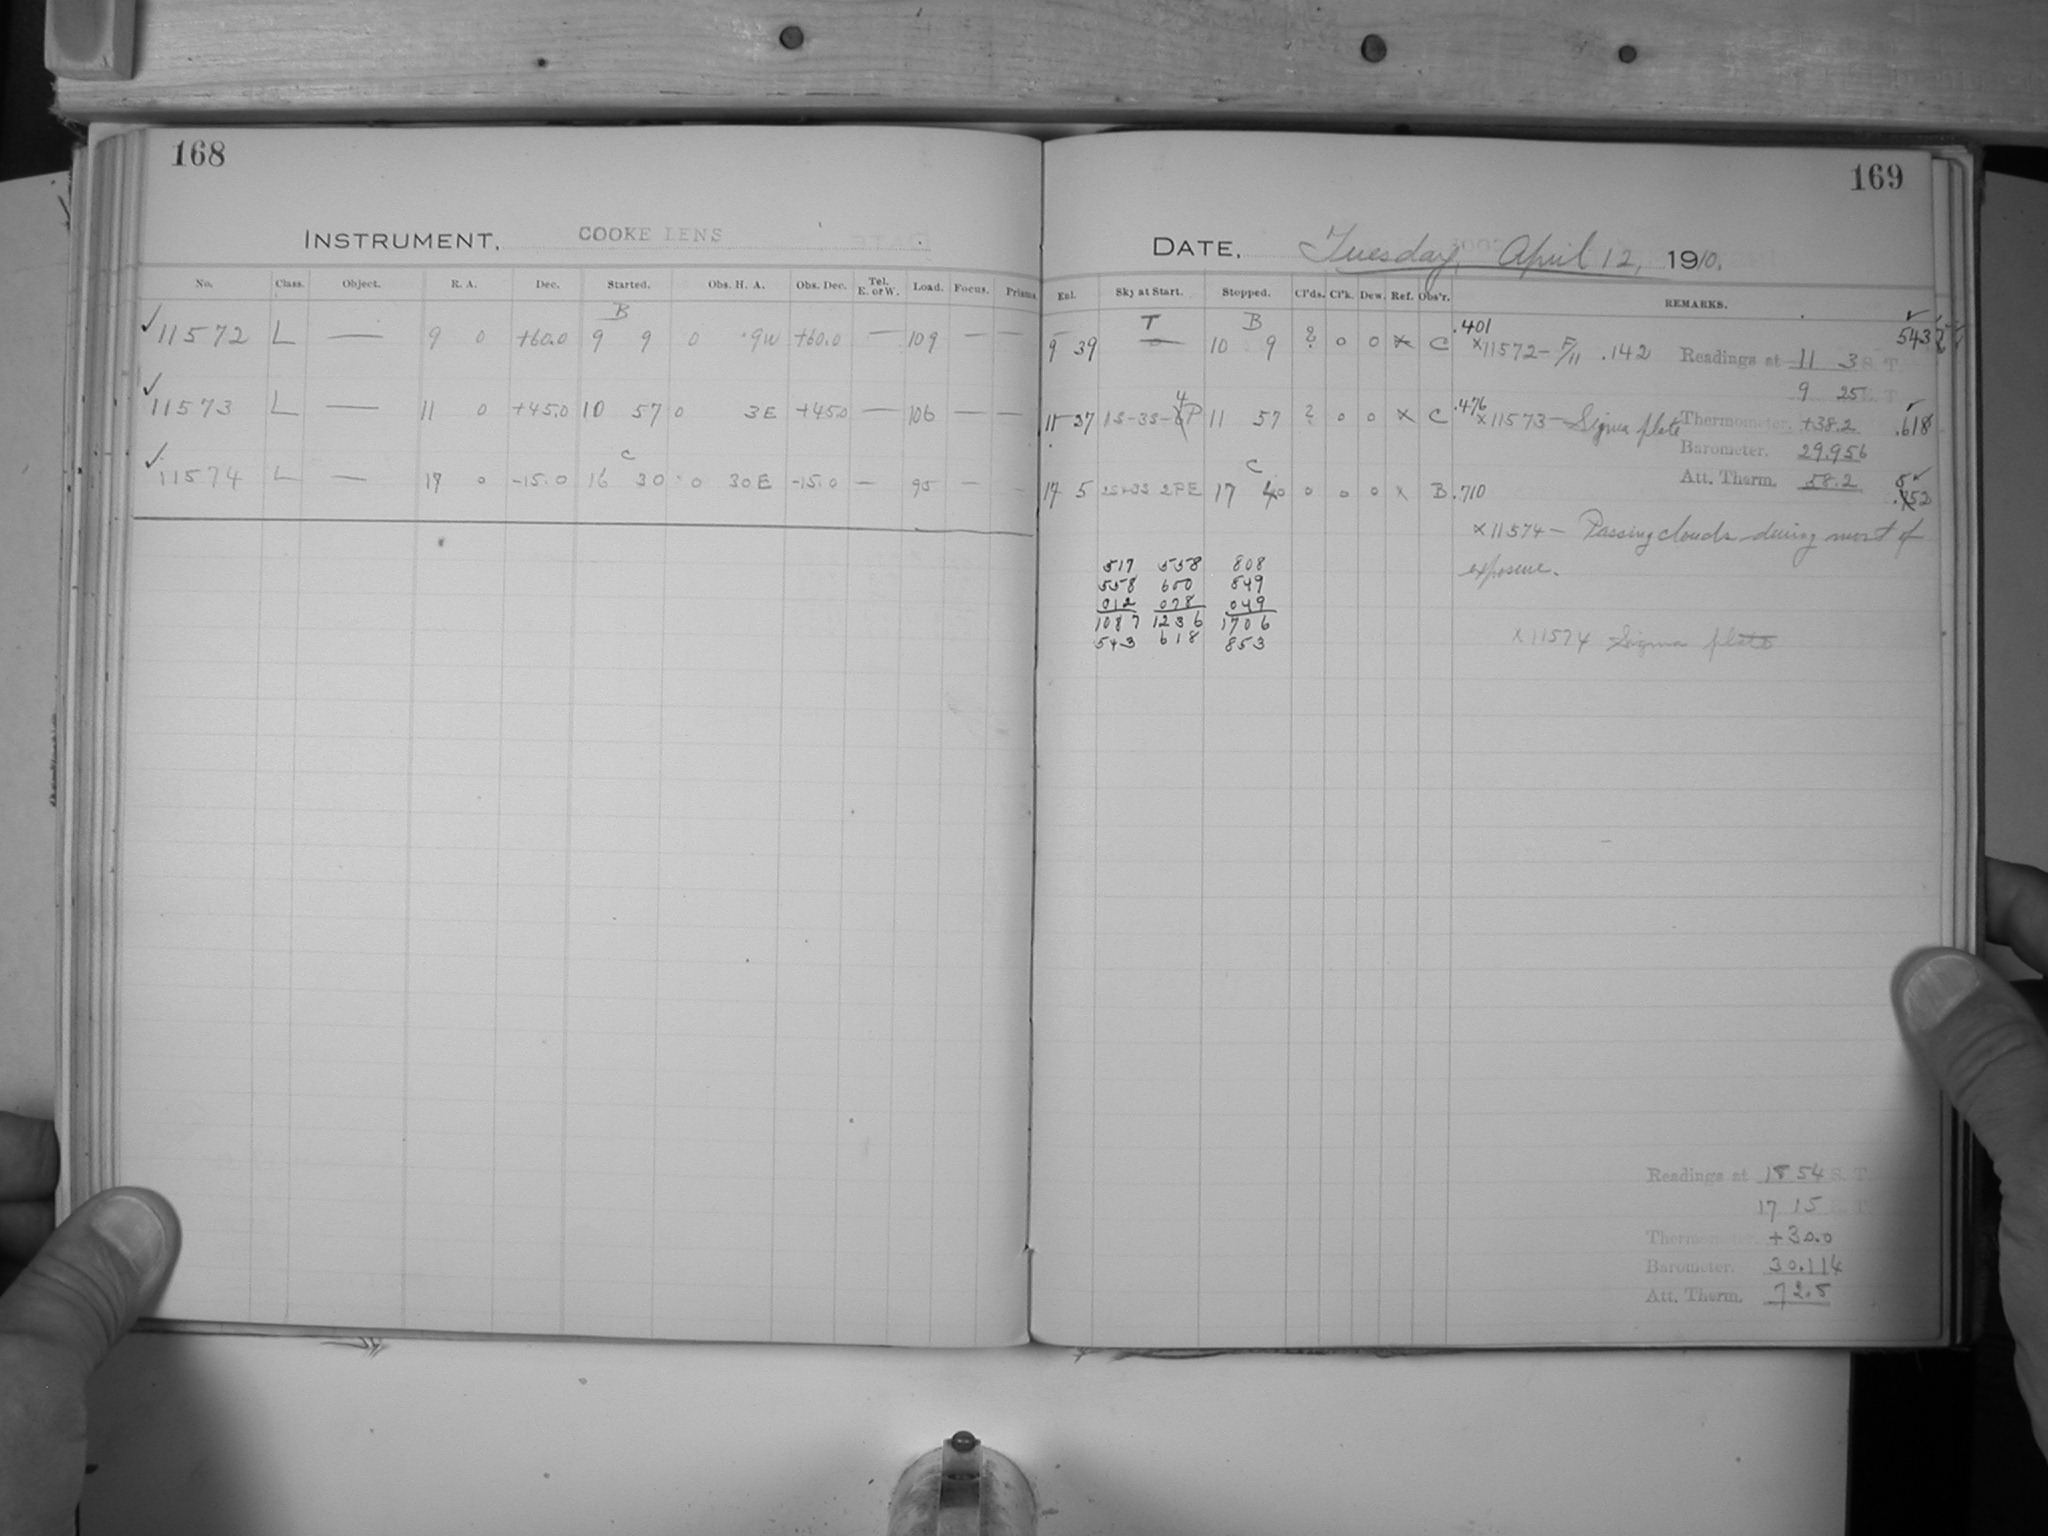 168
INSTRUMENT, COOKE LENS
No. Class. Object. R. A. Dec. Started. Obs. H. A. Obs. Dec. Tel. E. or W. Load. Focus. Prisms.
B
✓ 11572 L — 9 0 +60.0 9 9 0 9W +60.0 — 109 — —
✓ 11573 L — 11 0 +45.0 10 57 0 3E +45.0 — 106 — —
C
✓ 11574 L — 17 0 -15.0 16 30 0 30E -15.0 — 95 — —
169
DATE, Tuesday, April 12, 1910.
Enl. Sky at Start. Stopped. Cl'ds. Cl'k. Dew. Ref. Obs'r. REMARKS.
T B
9 39 10 9 ? 0 0 x C .401 x11572 — F/11 .142 543
Readings at 11 3 S. T.
9 25 E. T.
11 37 1S-3S- 4P 11 57 ? 0 0 x C .476 x11573 — Sigma plate .618
Thermometer. +38.2
Barometer. 29.956
Att. Therm. 58.2
C
17 5 2S-3S 2PE 17 40 0 0 0 x B .710
x11574 — Passing clouds during most of
exposure.
517 558 808
558 600 849
012 078 049
1087 1236 1706
543 618 853
x11574 Sigma plate
Readings at 18 54 S. T.
17 15 E. T.
Thermometer. +30.0
Barometer. 30.114
Att. Therm. 72.5